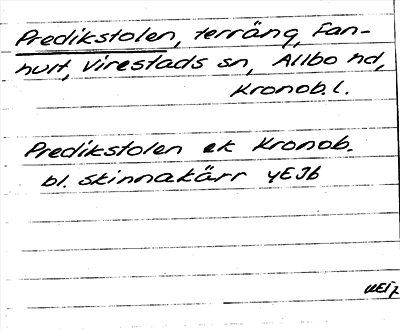 Predikstolen, terräng, Fan-
hult, Virestads sn, Allbo hd,
Kronob. l.
Predikstolen ek Kronob.
bl. Skinnakärr 4E3b